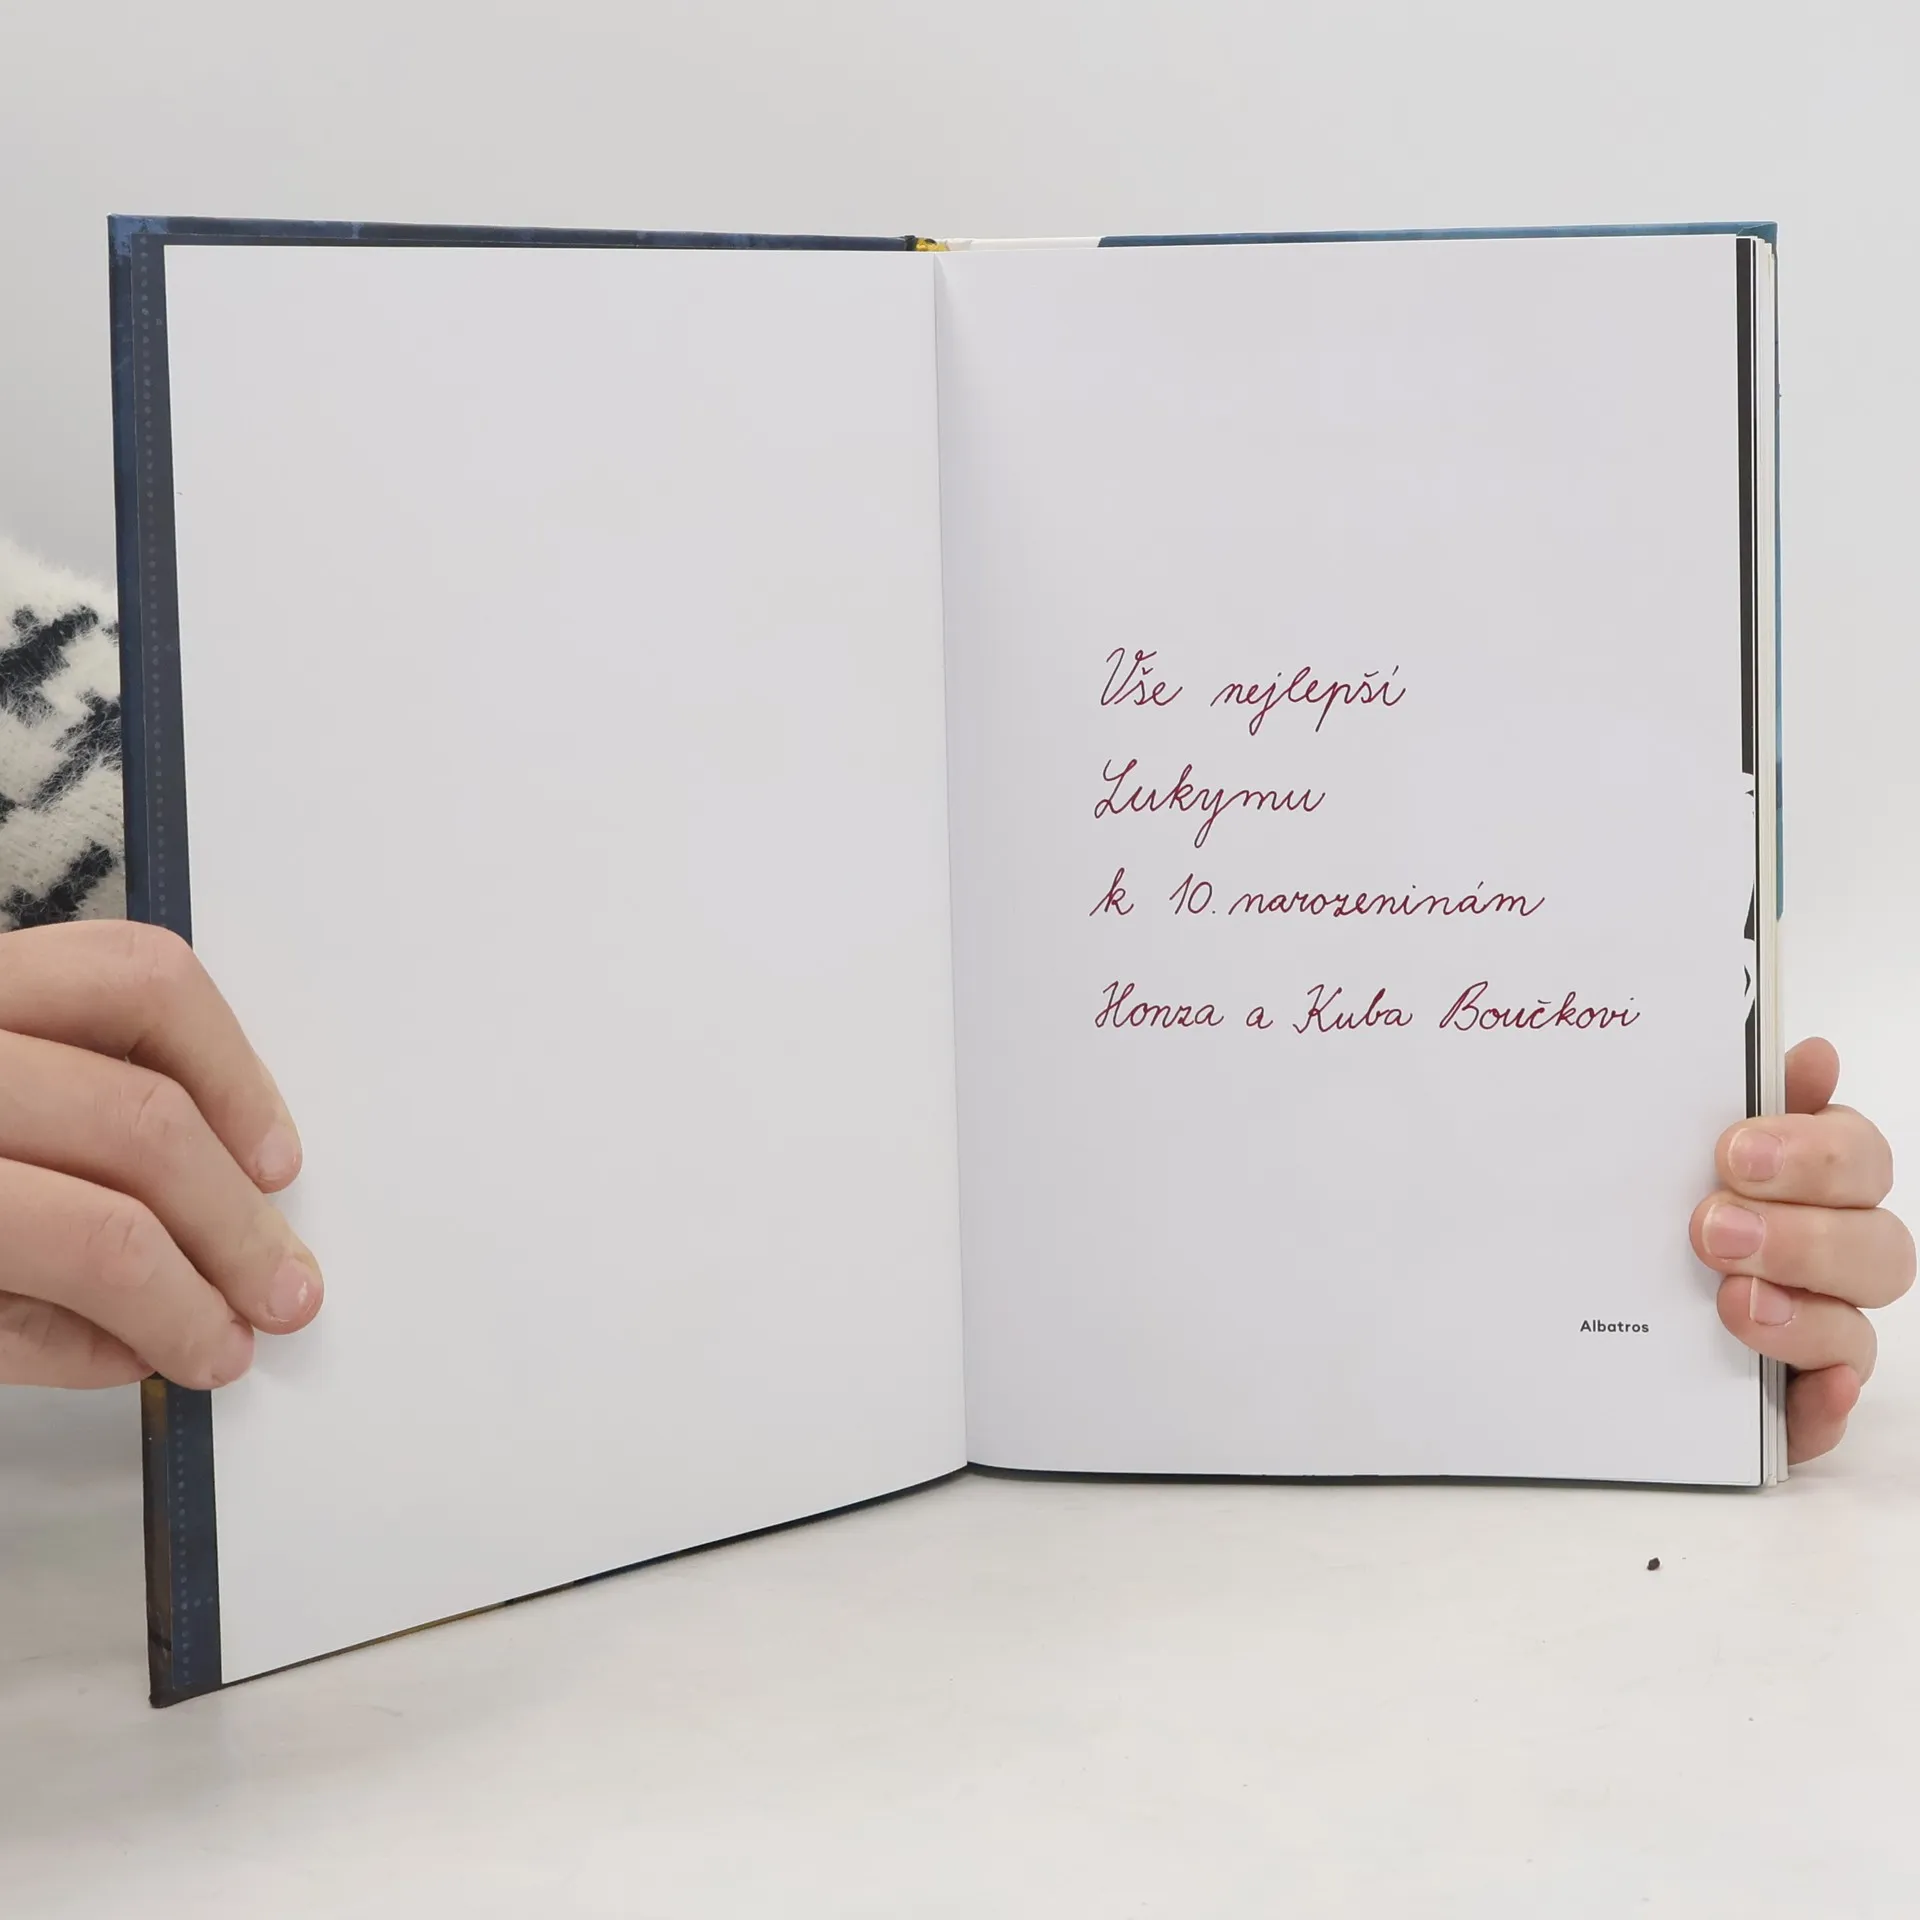 Vše nejlepší
Lukymu
k 10. narozeninám
Honza a Kuba Boučkovi
Albatros